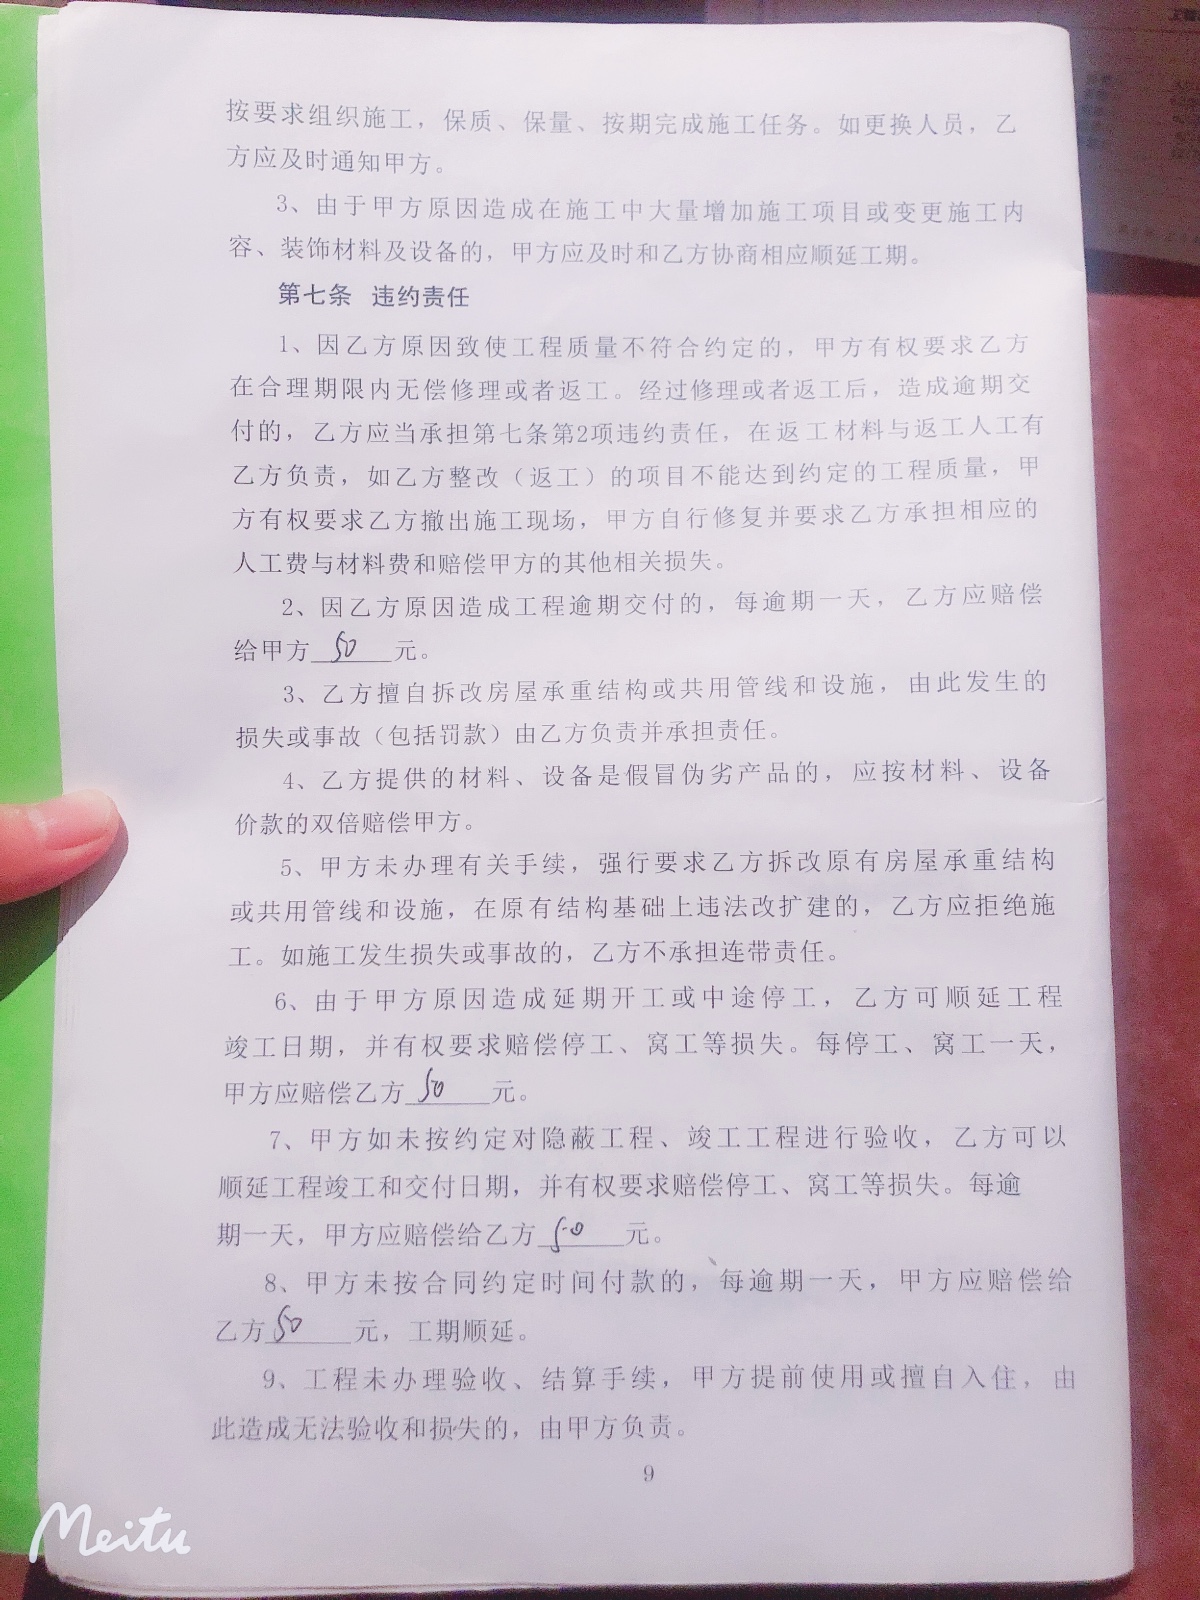 按要求组织施工，保质、保量、按期完成施工任务。如更换人员，乙
方应及时通知甲方。
3、由于甲方原因造成在施工中大量增加施工项目或变更施工内
容、装饰材料及设备的，甲方应及时和乙方协商相应顺延工期。
第七条 违约责任
1、因乙方原因致使工程质量不符合约定的，甲方有权要求乙方
在合理期限内无偿修理或者返工。经过修理或者返工后，造成逾期交
付的，乙方应当承担第七条第2项违约责任，在返工材料与返工人工有
乙方负责，如乙方整改（返工）的项目不能达到约定的工程质量，甲
方有权要求乙方撤出施工现场，甲方自行修复并要求乙方承担相应的
人工费与材料费和赔偿甲方的其他相关损失。
2、因乙方原因造成工程逾期交付的，每逾期一天，乙方应赔偿
给甲方 50 元。
3、乙方擅自拆改房屋承重结构或共用管线和设施，由此发生的
损失或事故（包括罚款）由乙方负责并承担责任。
4、乙方提供的材料、设备是假冒伪劣产品的，应按材料、设备
价款的双倍赔偿甲方。
5、甲方未办理有关手续，强行要求乙方拆改原有房屋承重结构
或共用管线和设施，在原有结构基础上违法改扩建的，乙方应拒绝施
工。如施工发生损失或事故的，乙方不承担连带责任。
6、由于甲方原因造成延期开工或中途停工，乙方可顺延工程
竣工日期，并有权要求赔偿停工、窝工等损失。每停工、窝工一天，
甲方应赔偿乙方 50 元。
7、甲方如未按约定对隐蔽工程、竣工工程进行验收，乙方可以
顺延工程竣工和交付日期，并有权要求赔偿停工、窝工等损失。每逾
期一天，甲方应赔偿给乙方 50 元。
8、甲方未按合同约定时间付款的，每逾期一天，甲方应赔偿给
乙方 50 元，工期顺延。
9、工程未办理验收、结算手续，甲方提前使用或擅自入住，由
此造成无法验收和损失的，由甲方负责。
9
Meitu